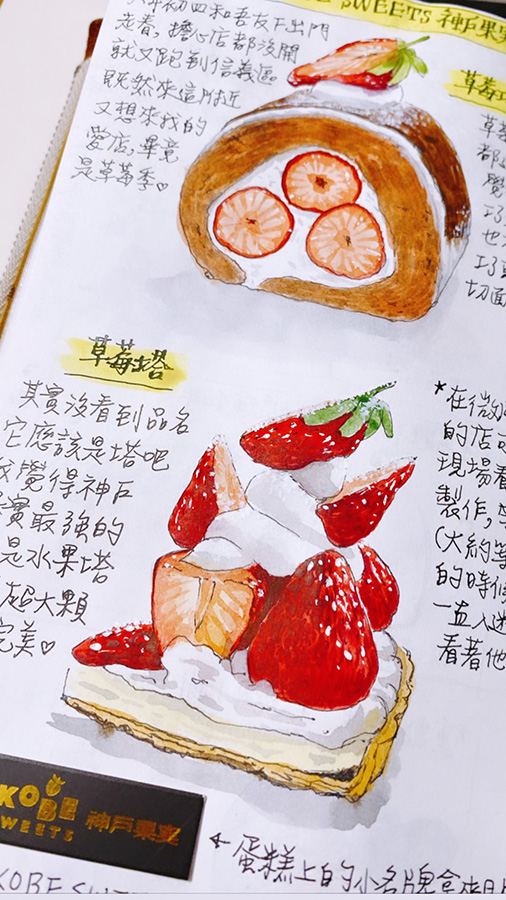 SWEETS 神戶果実
初四和吾友下出門
走春,擔心店都沒開
就又跑到信義區
既然來這附近
又想來我的
愛店,畢竟
是草莓季♡
草莓
草莓
都
覺
巧
也
巧
切面
草莓塔
其實沒看到品名
它應該是塔吧
覺得神戶
實最強的
是水果塔
超大顆
完美♡
*在微
的店
現場看
製作,
(大約等
的時候
一直入迷
看著他
KOBE
SWEETS 神戶果実
←蛋糕上的小名牌拿來
KOBE SWE